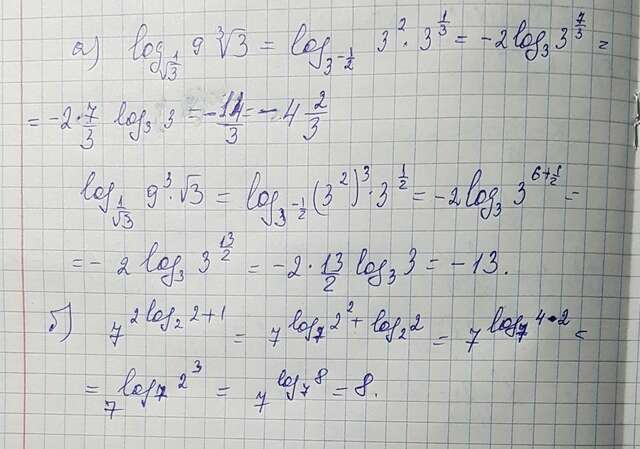 а) log_{1/√3} 9∛3 = log_{3^{-1/2}} 3^2 · 3^{1/3} = -2log_3 3^{7/3} =
= -2·7/3 log_3 3 = -14/3 = -4 2/3
log_{1/√3} 9^3·√3 = log_{3^{-1/2}} (3^2)^3 · 3^{1/2} = -2log_3 3^{6+1/2} =
= -2 log_3 3^{13/2} = -2·13/2 log_3 3 = -13.
б) 7^{2log_2 2+1} = 7^{log_7 2^2 + log_2 2} = 7^{log_7 4·2} =
= 7^{log_7 2^3} = 7^{log_7 8} = 8.